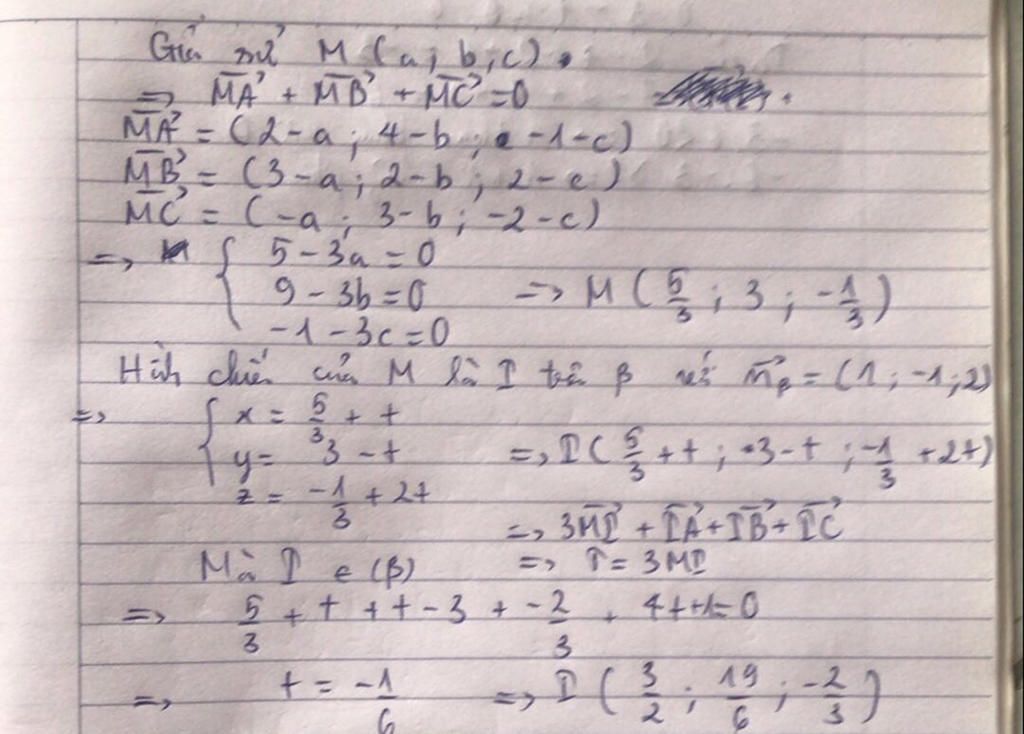 Giả sử M (a; b; c).
=> MA⃗ + MB⃗ + MC⃗ = 0
MA⃗ = (2-a; 4-b; -1-c)
MB⃗ = (3-a; 2-b; 2-c)
MC⃗ = (-a; 3-b; -2-c)
=> { 5-3a=0
9-3b=0 => M (5/3; 3; -1/3)
-1-3c=0
Hình chiếu của M là I trên β với n⃗β = (1; -1; 2)
=> { x = 5/3 + t
y = 3 - t => I (5/3 + t; 3-t; -1/3 + 2t)
z = -1/3 + 2t
=> 3MI⃗ + IA⃗ + IB⃗ + IC⃗
Mà I ∈ (β) => T = 3MI
=> 5/3 + t + t - 3 + -2/3 + 4t + 1 = 0
=> t = -1/6 => I (3/2; 19/6; -2/3)